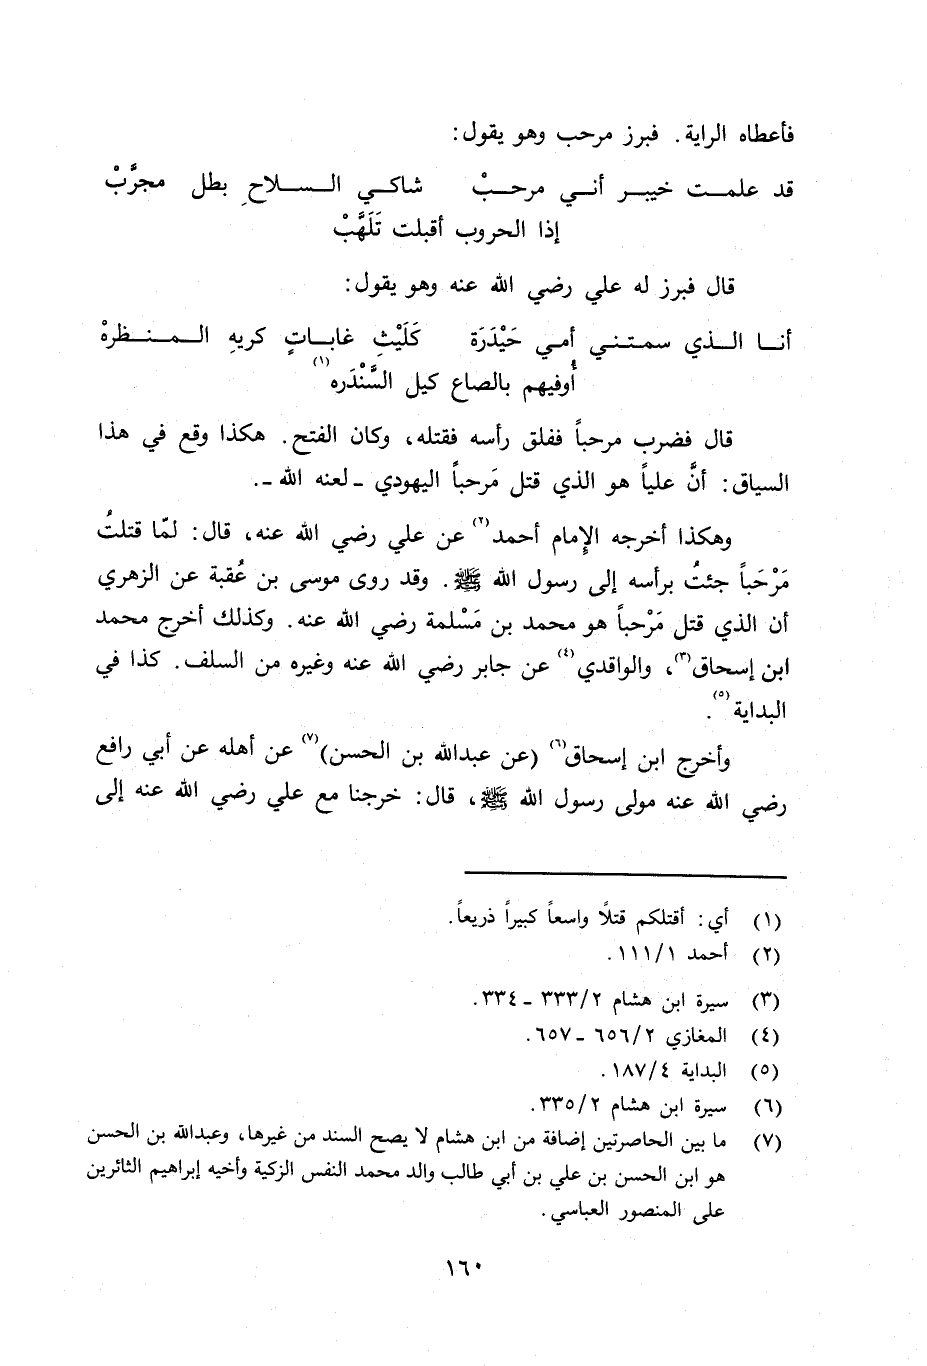 فأعطاه الراية. فبرز مرحب وهو يقول:
قد علمت خيبر أني مرحبْ شاكي السلاحِ بطل مجرَّبْ
إذا الحروب أقبلت تَلَهَّبْ
قال فبرز له علي رضي الله عنه وهو يقول:
أنا الذي سمتني أمي حَيْدَرَة كَلَيْثِ غاباتٍ كريهِ المنظرهْ
أُوفيهم بالصاع كيل السَّنْدَره(١)
قال فضرب مرحباً ففلق رأسه فقتله، وكان الفتح. هكذا وقع في هذا
السياق: أنَّ علياً هو الذي قتل مَرحباً اليهودي ـ لعنه الله ـ.
وهكذا أخرجه الإمام أحمد(٢) عن علي رضي الله عنه، قال: لمّا قتلتُ
مَرْحَباً جئتُ برأسه إلى رسول الله ﷺ. وقد روى موسى بن عُقبة عن الزهري
أن الذي قتل مَرْحباً هو محمد بن مَسْلمة رضي الله عنه. وكذلك أخرج محمد
ابن إسحاق(٣)، والواقدي(٤) عن جابر رضي الله عنه وغيره من السلف. كذا في
البداية(٥).
وأخرج ابن إسحاق(٦) (عن عبدالله بن الحسن)(٧) عن أهله عن أبي رافع
رضي الله عنه مولى رسول الله ﷺ، قال: خرجنا مع علي رضي الله عنه إلى
(١) أي: أقتلكم قتلاً واسعاً كبيراً ذريعاً.
(٢) أحمد ١١١/١.
(٣) سيرة ابن هشام ٣٣٣/٢ ـ ٣٣٤.
(٤) المغازي ٦٥٦/٢ ـ ٦٥٧.
(٥) البداية ١٨٧/٤.
(٦) سيرة ابن هشام ٣٣٥/٢.
(٧) ما بين الحاصرتين إضافة من ابن هشام لا يصح السند من غيرها، وعبدالله بن الحسن
هو ابن الحسن بن علي بن أبي طالب والد محمد النفس الزكية وأخيه إبراهيم الثائرين
على المنصور العباسي.
١٦٠